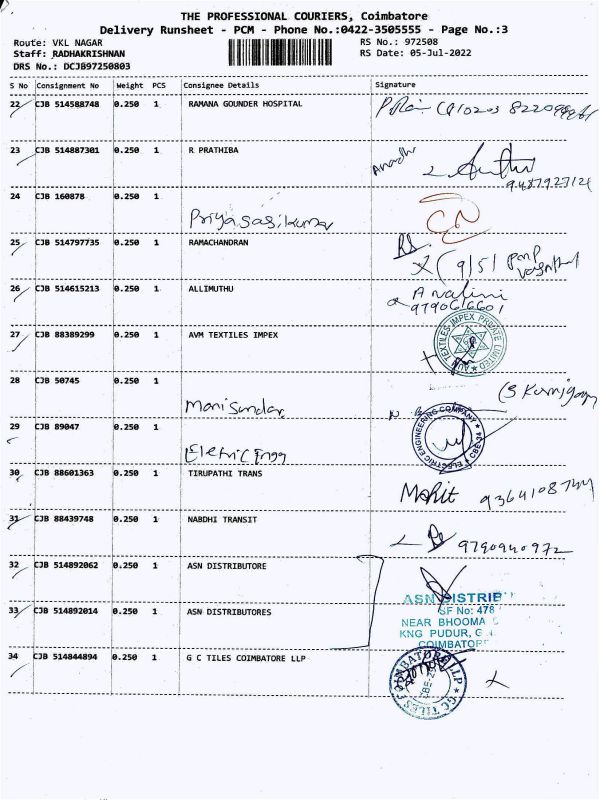 THE PROFESSIONAL COURIERS, Coimbatore
Delivery Runsheet - PCM - Phone No.:0422-3505555 - Page No.:3
Route: VKL NAGAR RS No.: 972508
Staff: RADHAKRISHNAN RS Date: 05-Jul-2022
DRS No.: DCJB97250803
S No Consignment No Weight PCS Consignee Details Signature
22 CJB 514588748 0.250 1 RAMANA GOUNDER HOSPITAL
23 CJB 514887301 0.250 1 R PRATHIBA
9487927124
24 CJB 160878 0.250 1
Priya sasikumar CN
25 CJB 514797735 0.250 1 RAMACHANDRAN
26 CJB 514615213 0.250 1 ALLIMUTHU A Nalini
9790616601
27 CJB 88389299 0.250 1 AVM TEXTILES IMPEX
TEXTILES IMPEX PRIVATE LIMITED
28 CJB 50745 0.250 1
Mani Sundar
29 CJB 89047 0.250 1
Eletric Engg
ELECTRIC ENGINEERING COMPANY
30 CJB 88601363 0.250 1 TIRUPATHI TRANS Mohit
31 CJB 88439748 0.250 1 NABDHI TRANSIT
9790940972
32 CJB 514892062 0.250 1 ASN DISTRIBUTORE
ASN DISTRIB
33 CJB 514892014 0.250 1 ASN DISTRIBUTORES SF No: 478
NEAR BHOOMA
KNG PUDUR, G
COIMBATORE
34 CJB 514844894 0.250 1 G C TILES COIMBATORE LLP
GC TILES COIMBATORE LLP